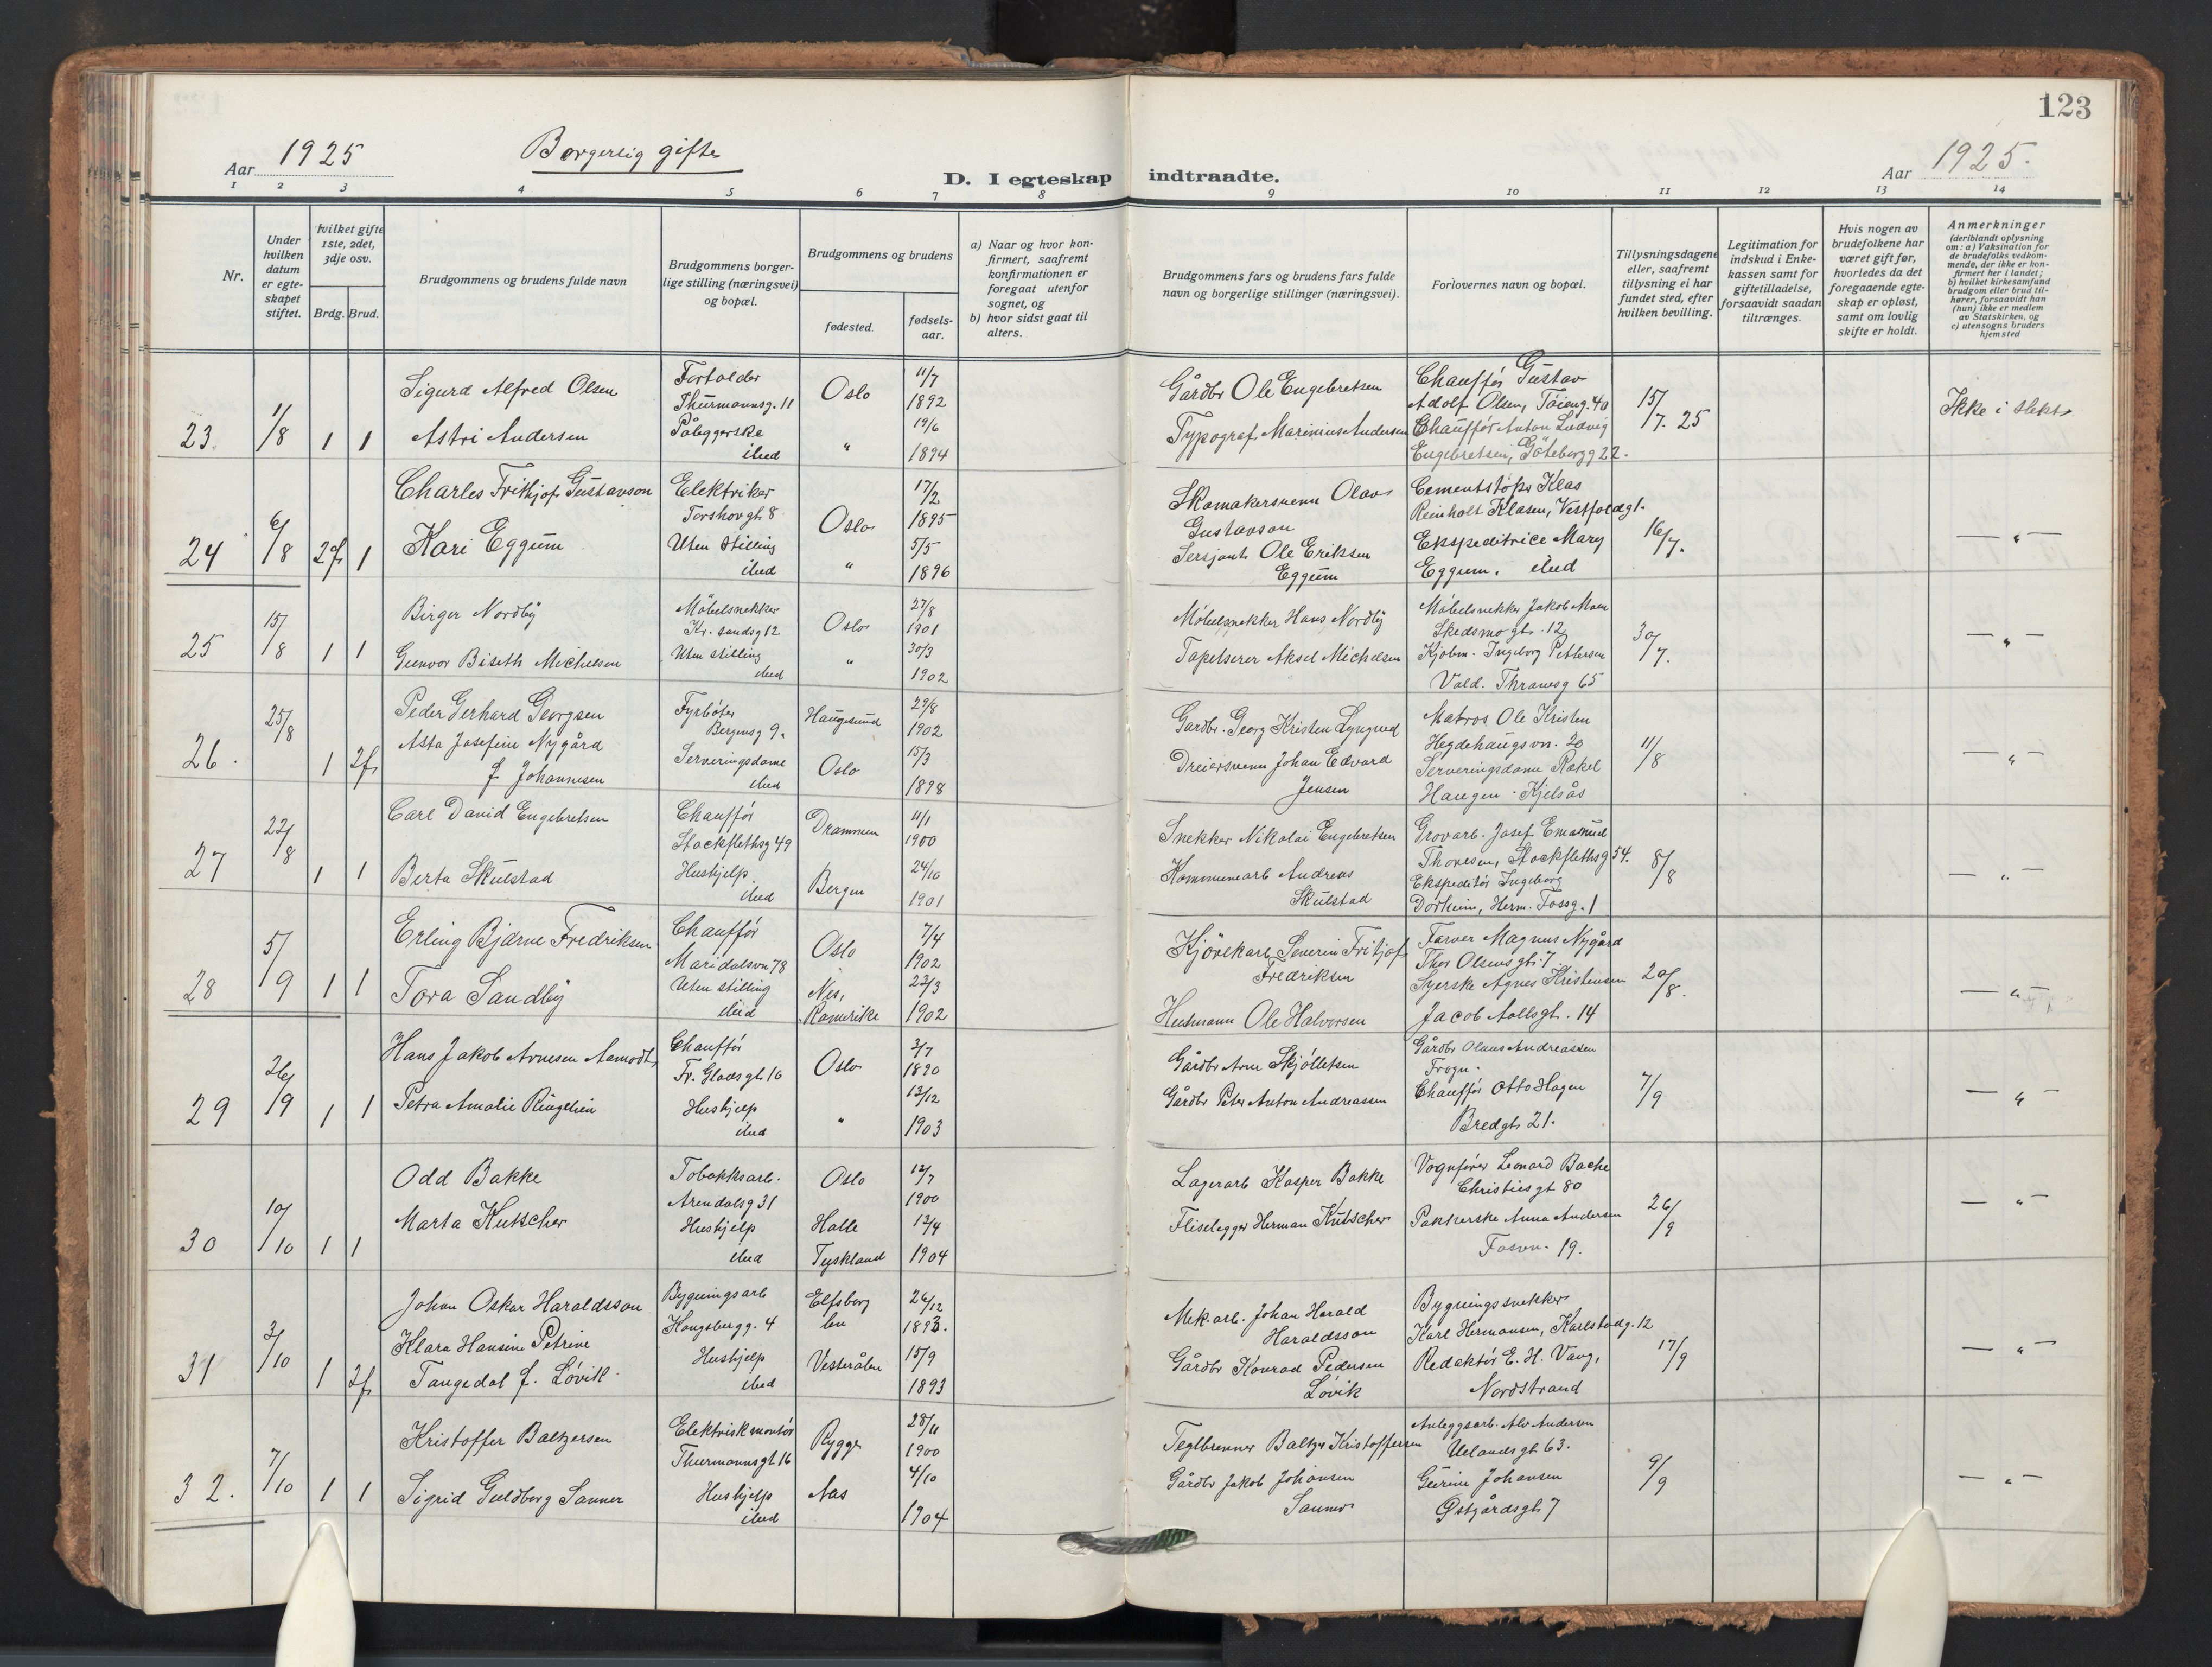 123
Aar 1925
Borgerlig gifte
D. I egteskap indtraadte.
Aar 1925.
1 2 3 4 5 6 7 8 9 10 11 12 13 14
Nr.
Under hvilken datum er egteskapet stiftet.
hvilket gifte 1ste, 2det, 3dje osv.
Brdg. Brud.
Brudgommens og brudens fulde navn
Brudgommens borgerlige stilling (næringsvei) og bopæl.
Brudgommens og brudens
fødested.
fødselsaar.
a) Naar og hvor konfirmert, saafremt konfirmationen er foregaat utenfor sognet, og
b) hvor sidst gaat til alters.
Brudgommens fars og brudens fars fulde navn og borgerlige stillinger (næringsvei).
Forlovernes navn og bopæl.
Tillysningsdagene eller, saafremt tillysning ei har fundet sted, efter hvilken bevilling.
Legitimation for indskud i Enkekassen samt for giftetilladelse, forsaavidt saadan tiltrænges.
Hvis nogen av brudefolkene har været gift før, hvorledes da det foregaaende egteskap er opløst, samt om lovlig skifte er holdt.
Anmerkninger
(deriblandt oplysning om: a) Vaksination for de brudefolks vedkommende, der ikke er konfirmert her i landet; b) hvilket kirkesamfund brudgom eller brud tilhører, forsaavidt han (hun) ikke er medlem av Statskirken, og c) utensogns bruders hjemsted
23. 1/8 1 1
Sigurd Alfred Olsen
Astri Andersen
Fortolder
Thurmannsg. 11
Påleggerske
ibid
Oslo
"
11/7
1892
19/6
1894
Gårdbr Ole Engebretsen
Typograf Marinius Andersen
Chauffør Gustav
Adolf Olsen, Tøieng. 40
Chauffør Anton Ludvig
Engebretsen, Göteborgg 22.
15/7. 25
Ikke i slekt
24 6/8 2g 1
Charles Frithjof Gustavson
Kari Eggum
Elektriker
Torshovgt. 8
Uten stilling
ibid
Oslo
"
17/2
1895
5/5
1896
Skomakersvenn Olav
Gustavson
Sersjant Ole Eriksen
Eggum
Cementstøper Klas
Reinholt Klasen, Vestfoldgt.
Ekspeditrice Mary
Eggum. ibid
16/7.
— " —
25 15/8 1 1
Birger Nordby
Gunvor Biseth Michelsen
Møbelsnekker
Kr. sandsg 12
Uten stilling
ibid
Oslo
"
27/8
1901
30/3
1902
Møbelsnekker Hans Nordby
Tapetserer Aksel Michelsen
Møbelsnekker Jakob Moen
Skedsmogt. 12
Kjøbm. Ingeborg Pettersen
Vald. Thranesg 65
30/7.
— " —
26. 25/8 1 2g
Peder Gerhard Georgsen
Asta Josefine Nygård
f. Johannesen
Fyrbøter
Bergensg 9.
Serveringsdame
ibid
Haugesund
Oslo
29/8
1902
15/3
1898
Gardbr. Georg Kristen Lyngved
Dreiersvenn Johan Edvard
Jensen
Matros Ole Kristen
Hegdehaugsvn. 20
Serveringsdame Rakel
Haugen. Kjelsås
11/8
— " —
27 22/8 1 1
Carl David Engebretsen
Berta Skulstad
Chauffør
Stockflethsg 49
Hushjelp.
ibid
Drammen
Bergen
11/1
1900
24/10
1901
Snekker Nikolai Engebretsen
Kommunearb Andreas
Skulstad
Grovarb. Josef Emanuel
Thoresen, Stockflethsg 54.
Ekspeditør Ingeborg
Dorheim, Herm. Fossg. 1
8/8
— " —
28 5/9 1 1
Erling Bjarne Fredriksen
Tora Sandby
Chauffør
Maridalsvn 78
Uten stilling
ibid
Oslo
Nes,
Romerike
7/4
1902
23/3
1902
Severin Fritjof
Fredriksen
Husmann Ole Halvorsen
Farver Magnus Nygård
Thor Olsens gt. 7
Syerske Agnes Kristensen
Jacob Aallsgt. 14
20/8.
— " —
29 26/9 1 1
Hans Jakob Arnesen Aamodt
Petra Amalie Ringelien
Chauffør
Fr. Gladsgt. 16
Hushjelp
ibid
Oslo
"
3/7
1890
13/12
1903
Gårdbr Arne Skjølletsen
Gårdbr Peter Anton Andreassen
Gårdbr Olaus Andreassen
Frogn.
Chauffør Otto Hagen
Bredgt. 21.
7/9
— " —
30 10/10 1 1
Odd Bakke
Marta Kutscher
Tobakksarb.
Arendalsg 31
Hushjelp
ibid
Oslo
Halle
Tyskland
12/7
1900
13/4
1904
Lagerarb Kasper Bakke
Fliselegger Herman Kutscher
Vognfører Leonard Bache
Christiesgt. 80
Pakkerske Anna Andersen
Fosvn. 19.
26/9
— " —
31 3/10 1 2g
Johan Oskar Haraldsson
Klara Hansine Petrine
Tangedal f. Løvik.
Bygningsarb
Kongsbergg. 4
Hushjelp
ibid
Elfsborg
len
Vesterålen
26/12
1893.
15/9
1893
Mek. arb. Johan Harald
Haraldsson
Gårdbr Konrad Pedersen
Løvik
Bygningssnekker
Karl Hermansen, Karlstadg. 12
Redaktør E. H. Vang,
Nordstrand
17/9
— " —
32. 7/10 1 1
Kristoffer Baltzersen
Sigrid Guldborg Sanner
Elektriskmontør
Thurmannsgt 16
Hushjelp
ibid
Rygge
Aas
28/11
1900
4/10
1904
Teglbrenner Baltzer Kristoffersen
Gårdbr Jakob Johansen
Sanner
Anleggsarb. Alv Andersen
Uelandsgt. 63.
Gurine Johansen
Østgårdsgt. 7
9/9
— " —